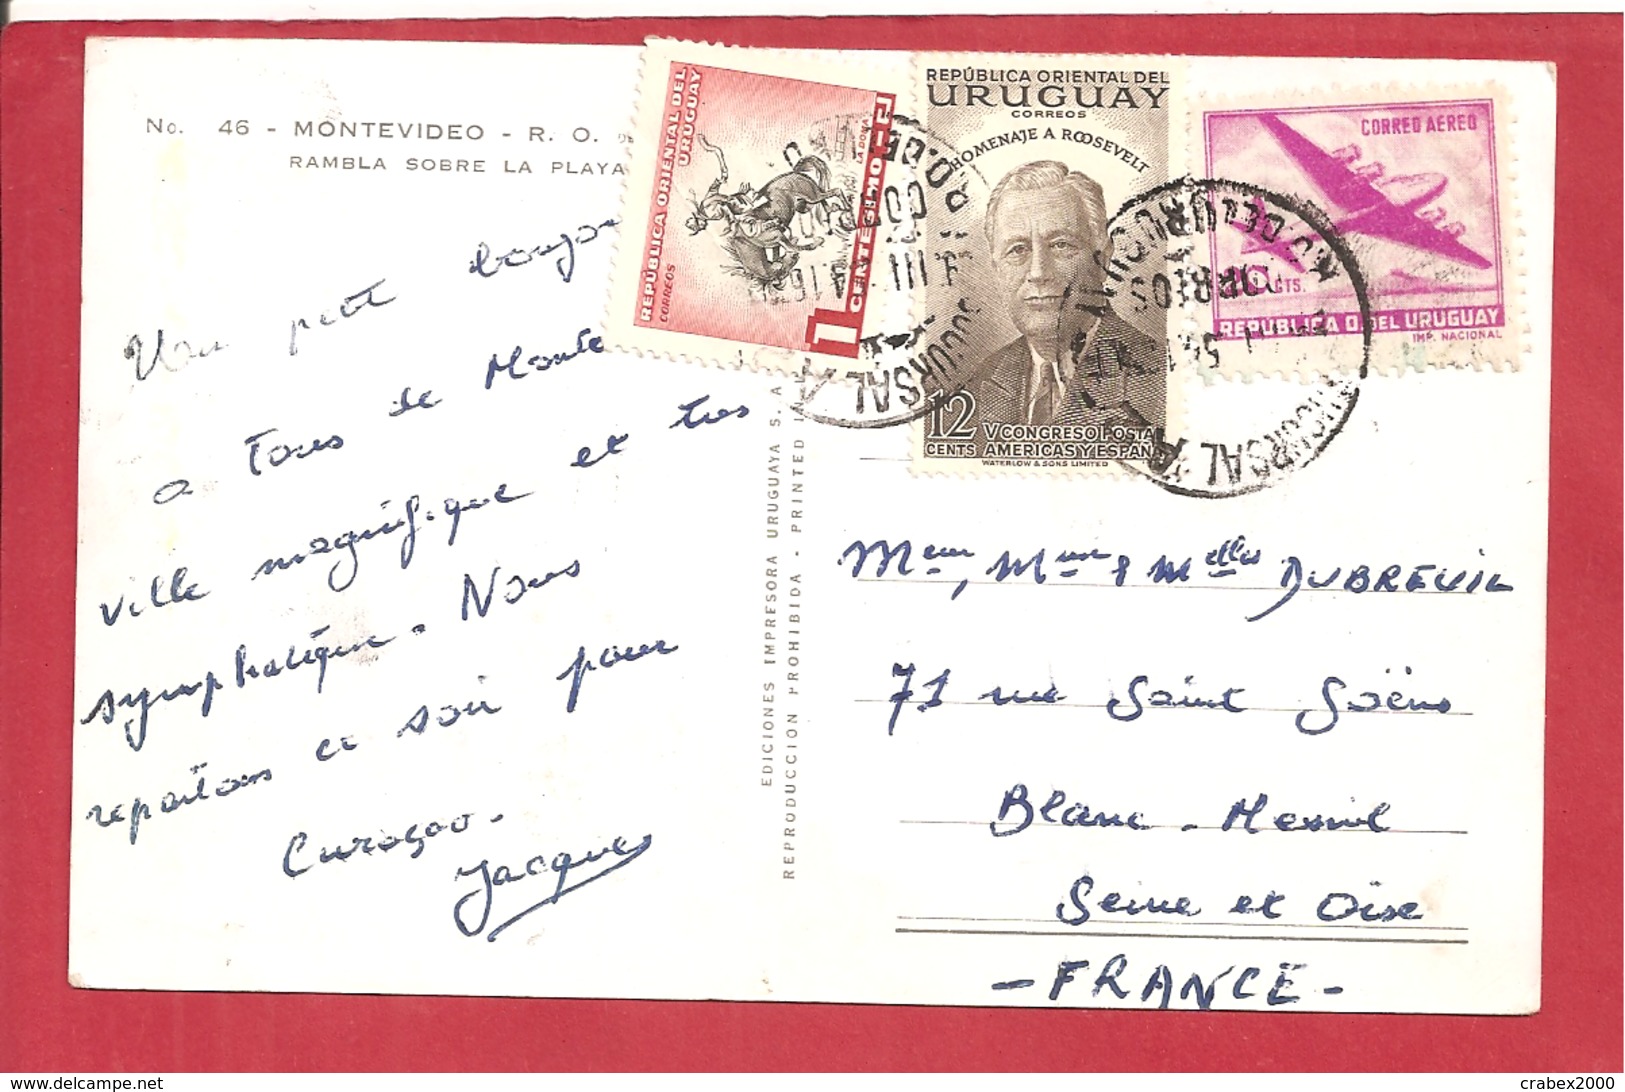 No. 46 - MONTEVIDEO - R. O.
RAMBLA SOBRE LA PLAYA
Un petit bonjou
a tous de Monte
ville magnifique et très
sympathique. Nous
repartons ce soir pour
Curaçao.
Jacques
EDICIONES IMPRESORA URUGUAYA S. A
REPRODUCCION PROHIBIDA - PRINTED I
REPÚBLICA ORIENTAL DEL
URUGUAY
CORREOS
LA DOMA
1 CENTESIMO
REPÚBLICA ORIENTAL DEL
URUGUAY
CORREOS
HOMENAJE A ROOSEVELT
12
CENTS
V CONGRESO POSTAL
AMERICAS Y ESPAÑA
WATERLOW & SONS LIMITED
CORREO AEREO
CTS.
REPUBLICA O. DEL URUGUAY
IMP. NACIONAL
R.O. DEL U
CORREOS
SUCURSAL
SUCURSAL
Meur, Mme & Melles DUBREUIL
71 rue Saint Saëns
Blanc-Mesnil
Seine et Oise
- FRANCE -
crabex2000